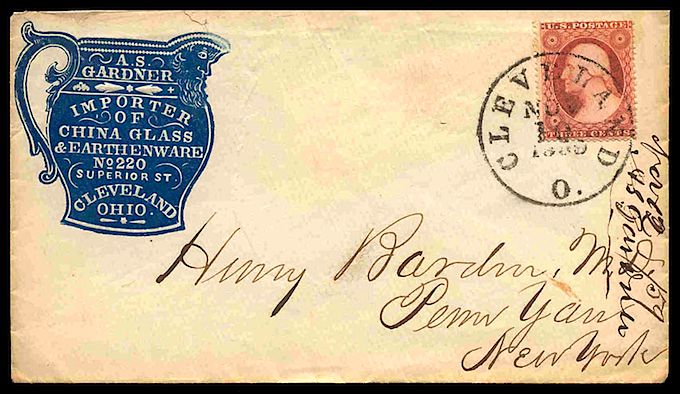 A.S.
GARDNER
IMPORTER
OF
CHINA GLASS
& EARTHENWARE
No 220
SUPERIOR ST.
CLEVELAND
OHIO.
U.S. POSTAGE
THREE CENTS
CLEVELAND
NOV
1859
O.
Henry Barden,
Penn Yan
New York